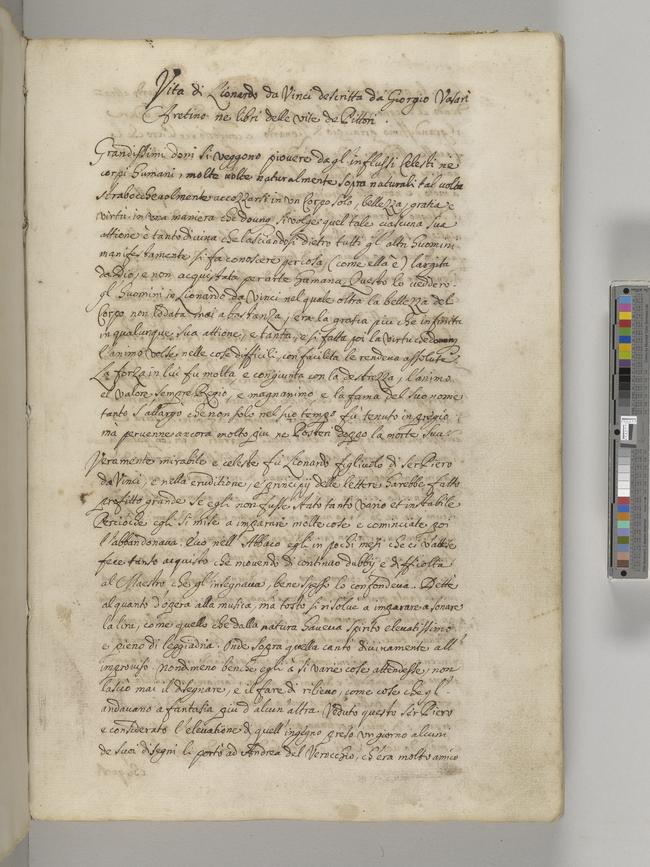 Vita di Lionardo da Vinci descritta da Giorgio Vasari
Aretino ne libri delle vite de Pittori.
Grandissimi doni si veggono piovere dagl'influssi Celesti ne
corpi humani, molte volte naturalmente, sopra naturali tal volta
strabocchevolmente accozzarsi in un Corpo solo, bellezza, gratia e
virtù in una maniera che dovunq si volge quel tale ciascuna sua
attione è tanto divina che lasciandosi dietro tutti gl'altri huomini
manifestamente si fa conoscere per cosa, (come ella è) largita
da Dio, e non acquistata per arte humana, Questo lo veddero
gl'huomini in Lionardo da Vinci nel quale oltra la bellezza del
Corpo non lodata mai abastanza, era la gratia piu che infinita
in qualunque sua attione, e tanta, e si fatta poi la virtu che
l'animo volse nelle cose difficili, con facilita le rendeva assolute
La forza in lui fu molta e congiunta con la destrezza, l'animo
el valore sempre Regio, e magnanimo e la fama del suo nome
tanto s'allargò che non solo nel suo tempo fù tenuto in pregio
mà pervenne ancora molto piu ne Posteri doppo la morte sua
Veramente mirabile e celeste fù Lionardo figliuolo di ser Piero
da Vinci, e nella eruditione, e principij delle lettere harebbe fatto
profitto grande se egli non fusse stato tanto vario et instabile
Percioche egli si mise a imparare molte cose e cominciate poi
l'abbandonava. Ecco nell'Abbaco egli in pochi mesi che ci s'attese
fece tanto acquisto che movendo di continuo dubbij e difficolta
al Maestro che gl'insegnava, bene spesso lo confondeva. Dette
alquanto d'opera alla musica, ma tosto si risolvè a imparare a sonare
la lira, come quello che dalla natura haveva spirito elevatissimo
e pieno di leggiadria. Onde sopra quella cantò divinamente all'
improviso. Nondimeno benche egli à si varie cose attendesse, non
lasciò mai il disegnare, e il fare di rilievo, come cose che gl'
andavano a fantasia più d'alcun'altra. Veduto questo ser Piero
e considerato l'elevatione di quell'ingegno preso un giorno alcuni
de suoi disegni li portò ad Andrea del Verocchio, ch'era molto amico